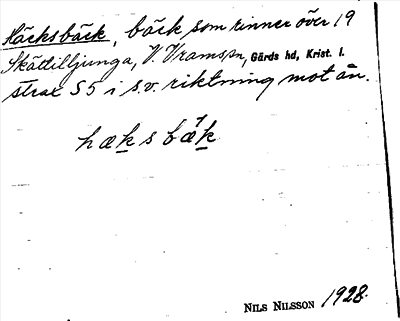 Häcksbäck, bäck som rinner över 19
Skättilljunga, V. Vramsn, Gärds hd, Krist. l.
strax S 5 i s.v. riktning mot ån.
hæksbæk
NILS NILSSON 1928.